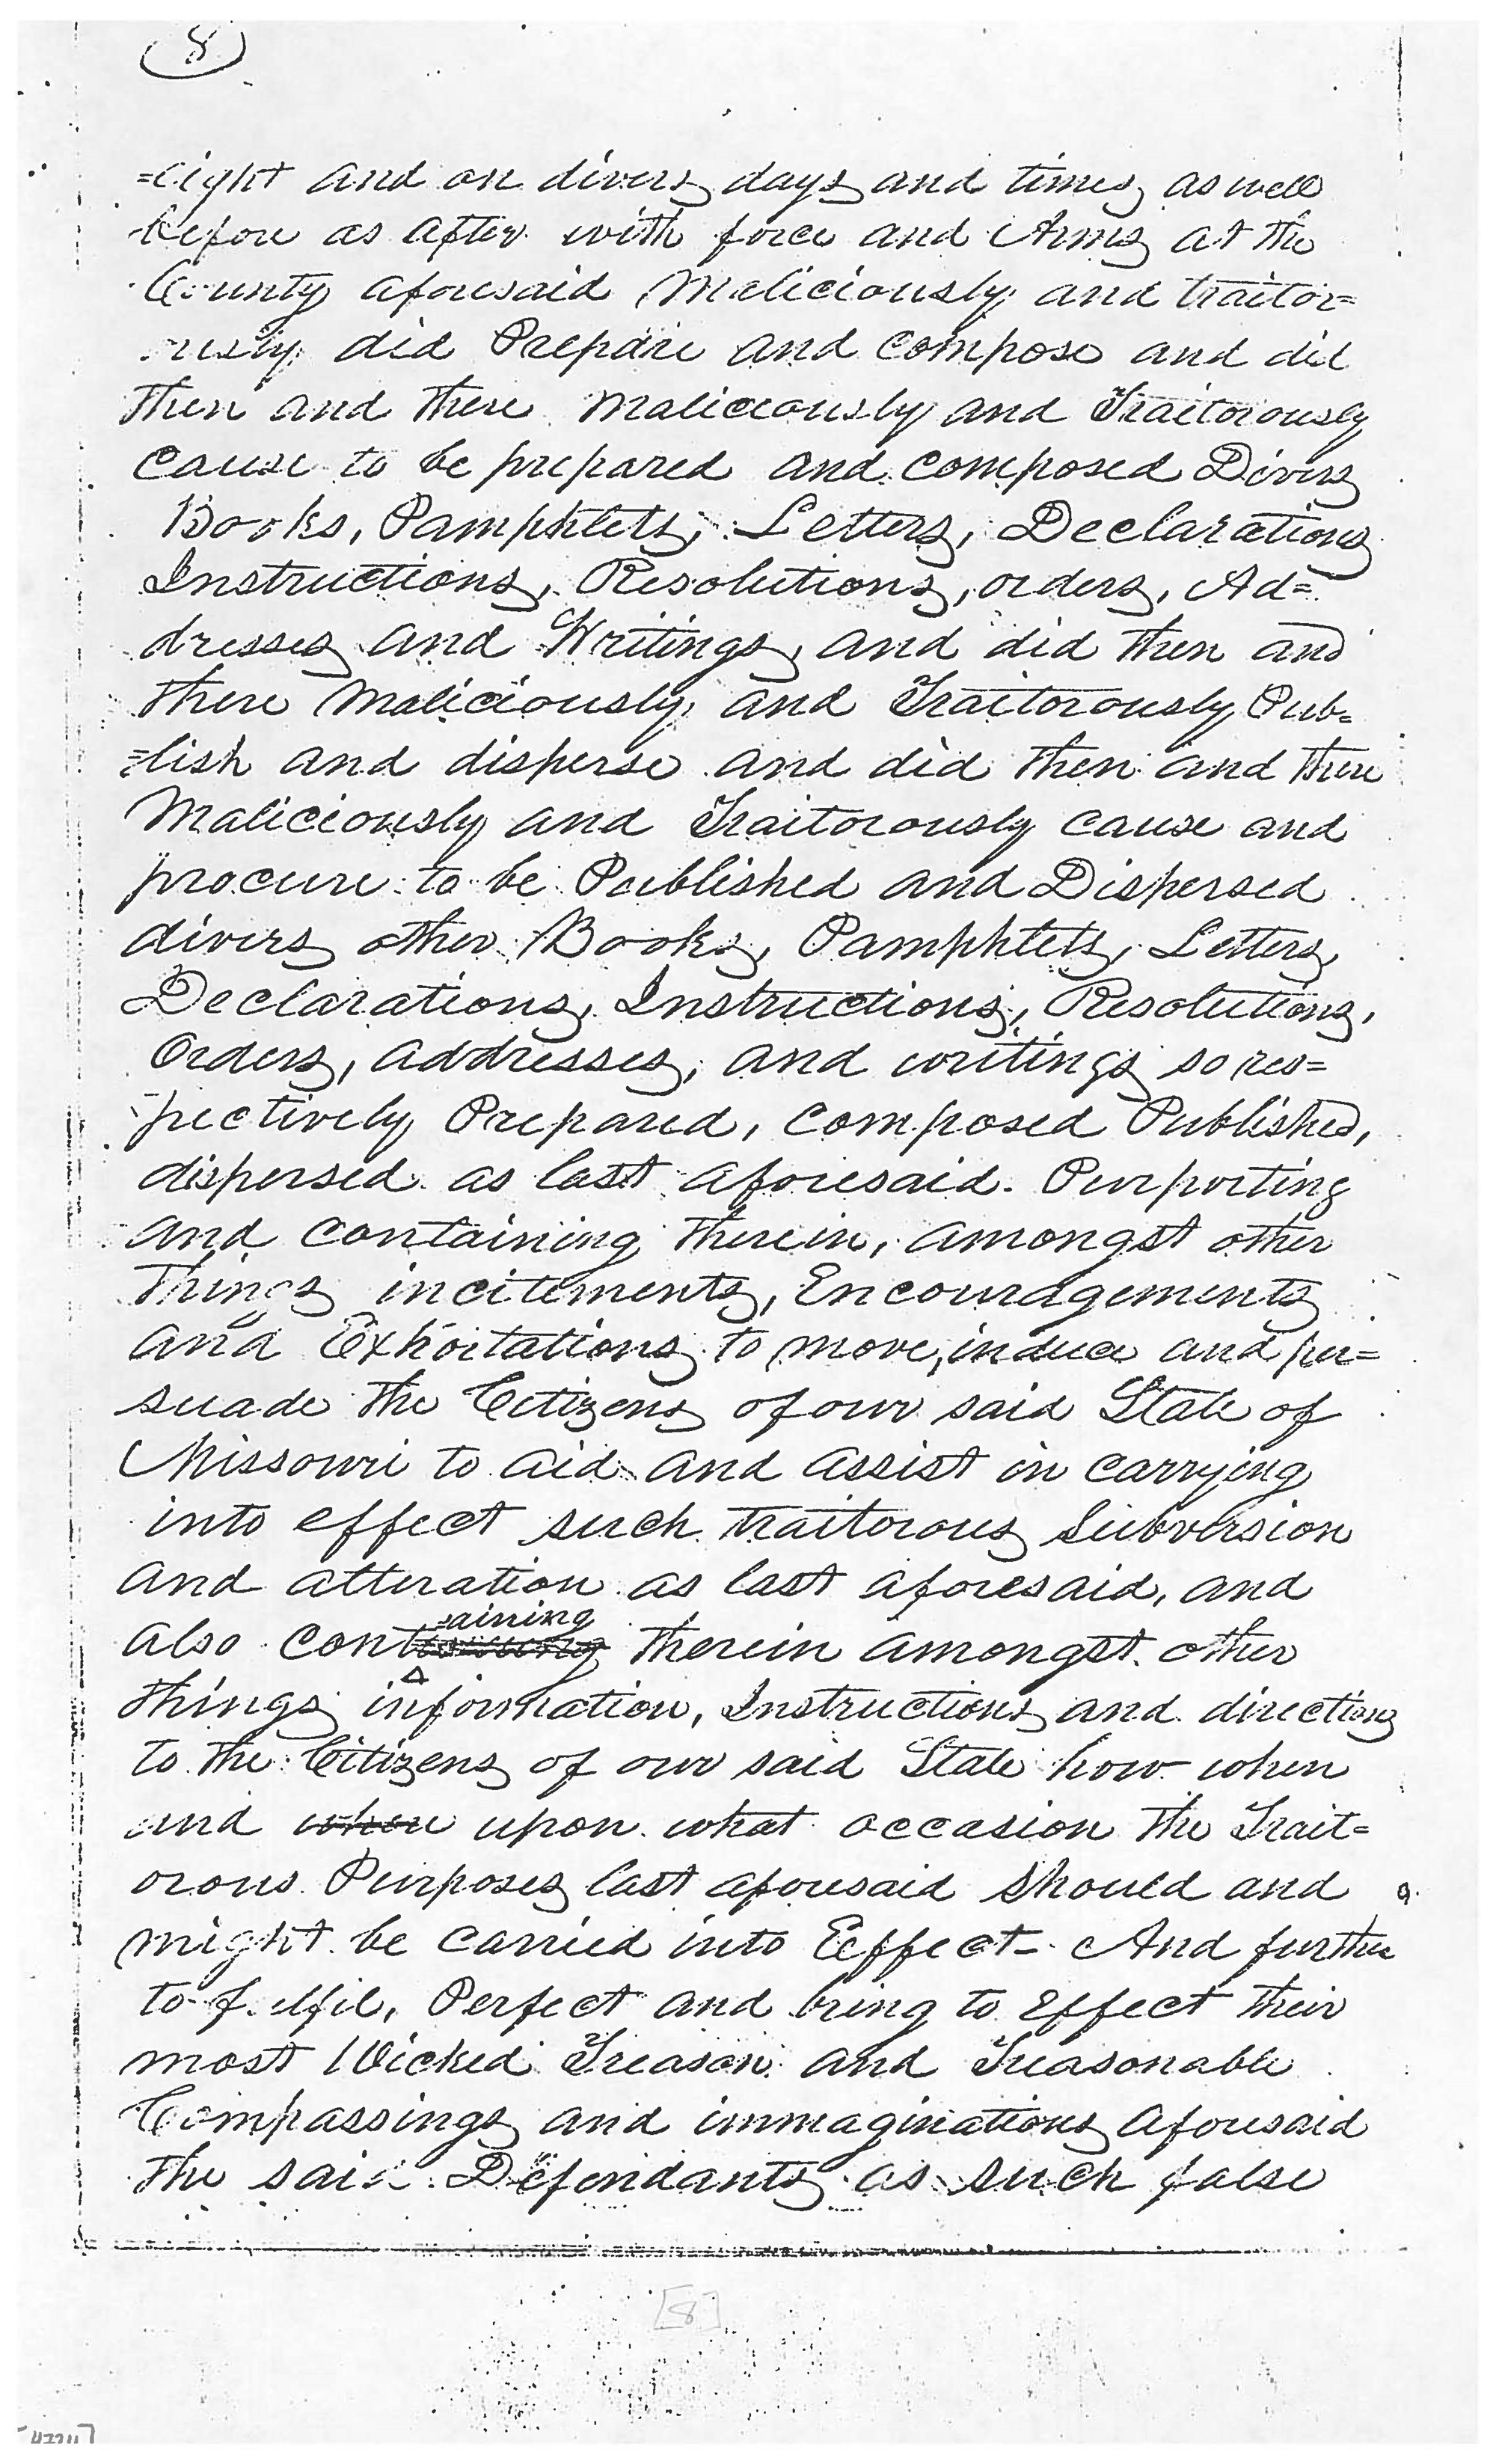 8
=eight and on divers days and times as well
before as after with force and Arms at the
County aforesaid Maliciously and traitor=
ously did Prepare and compose and did
then and there maliciously and Traitorously
cause to be prepared and composed Divers
Books, Pamphlets, Letters, Declarations
Instructions, Resolutions, orders, Ad=
dresses and Writings, and did then and
there Maliciously and Traitorously Pub=
=lish and disperse and did then and there
Maliciously and Traitorously cause and
procure to be Published and Dispersed
divers other Books, Pamphlets, Letters,
Declarations, Instructions, Resolutions,
Orders, addresses, and writings so res=
pectively Prepared, composed Published,
dispersed as last aforesaid. Purporting
and containing therein, amongst other
things incitements, Encouragements
and Exhortations to move, induce and per=
suade the Citizens of our said State of
Missouri to aid and assist in carrying
into effect such traitorous Subversion
and alteration as last aforesaid, and
also containing therein amongst other
things information, Instructions and directions
to the Citizens of our said State how when
and when upon what occasion the Trait=
orous Purposes last aforesaid should and
might be carried into Effect - And further
to fulfil, Perfect and bring to Effect their
most Wicked Treason and Treasonable
Compassings and immaginations aforesaid
the said Defendants as such false
[8]